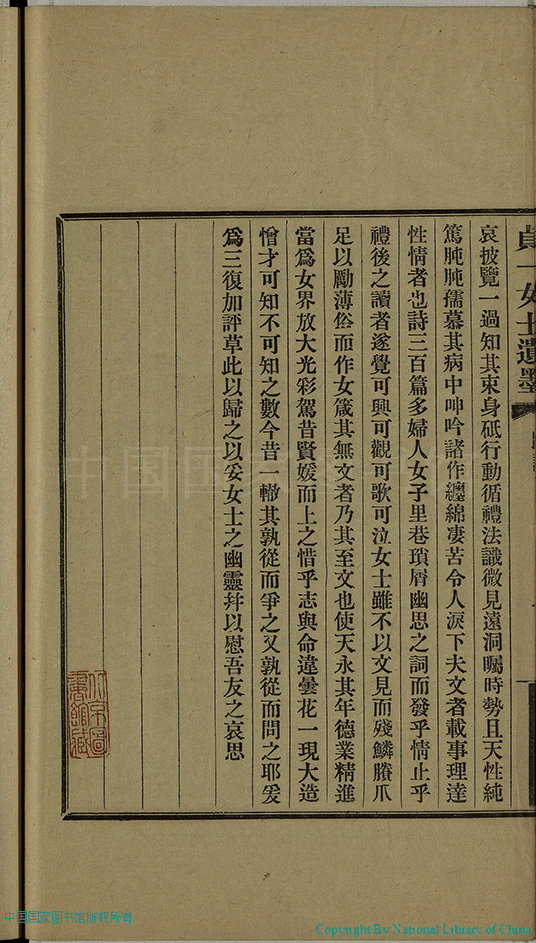 貞一女士遺墨
哀披覽一過知其束身砥行動循禮法識微見遠洞矚時勢且天性純
篤肫肫孺慕其病中呻吟諸作纏綿凄苦令人淚下夫文者載事理達
性情者也詩三百篇多婦人女子里巷瑣屑幽思之詞而發乎情止乎
禮後之讀者遂覺可興可觀可歌可泣女士雖不以文見而殘鱗賸爪
足以勵薄俗而作女箴其無文者乃其至文也使天永其年德業精進
當爲女界放大光彩駕昔賢媛而上之惜乎志與命違曇花一現大造
憎才可知不可知之數今昔一轍其孰從而爭之又孰從而問之耶爰
爲三復加評草此以歸之以妥女士之幽靈幷以慰吾友之哀思
北京圖
書館藏
中国国家图书馆版权所有
Copyright By National Library of China